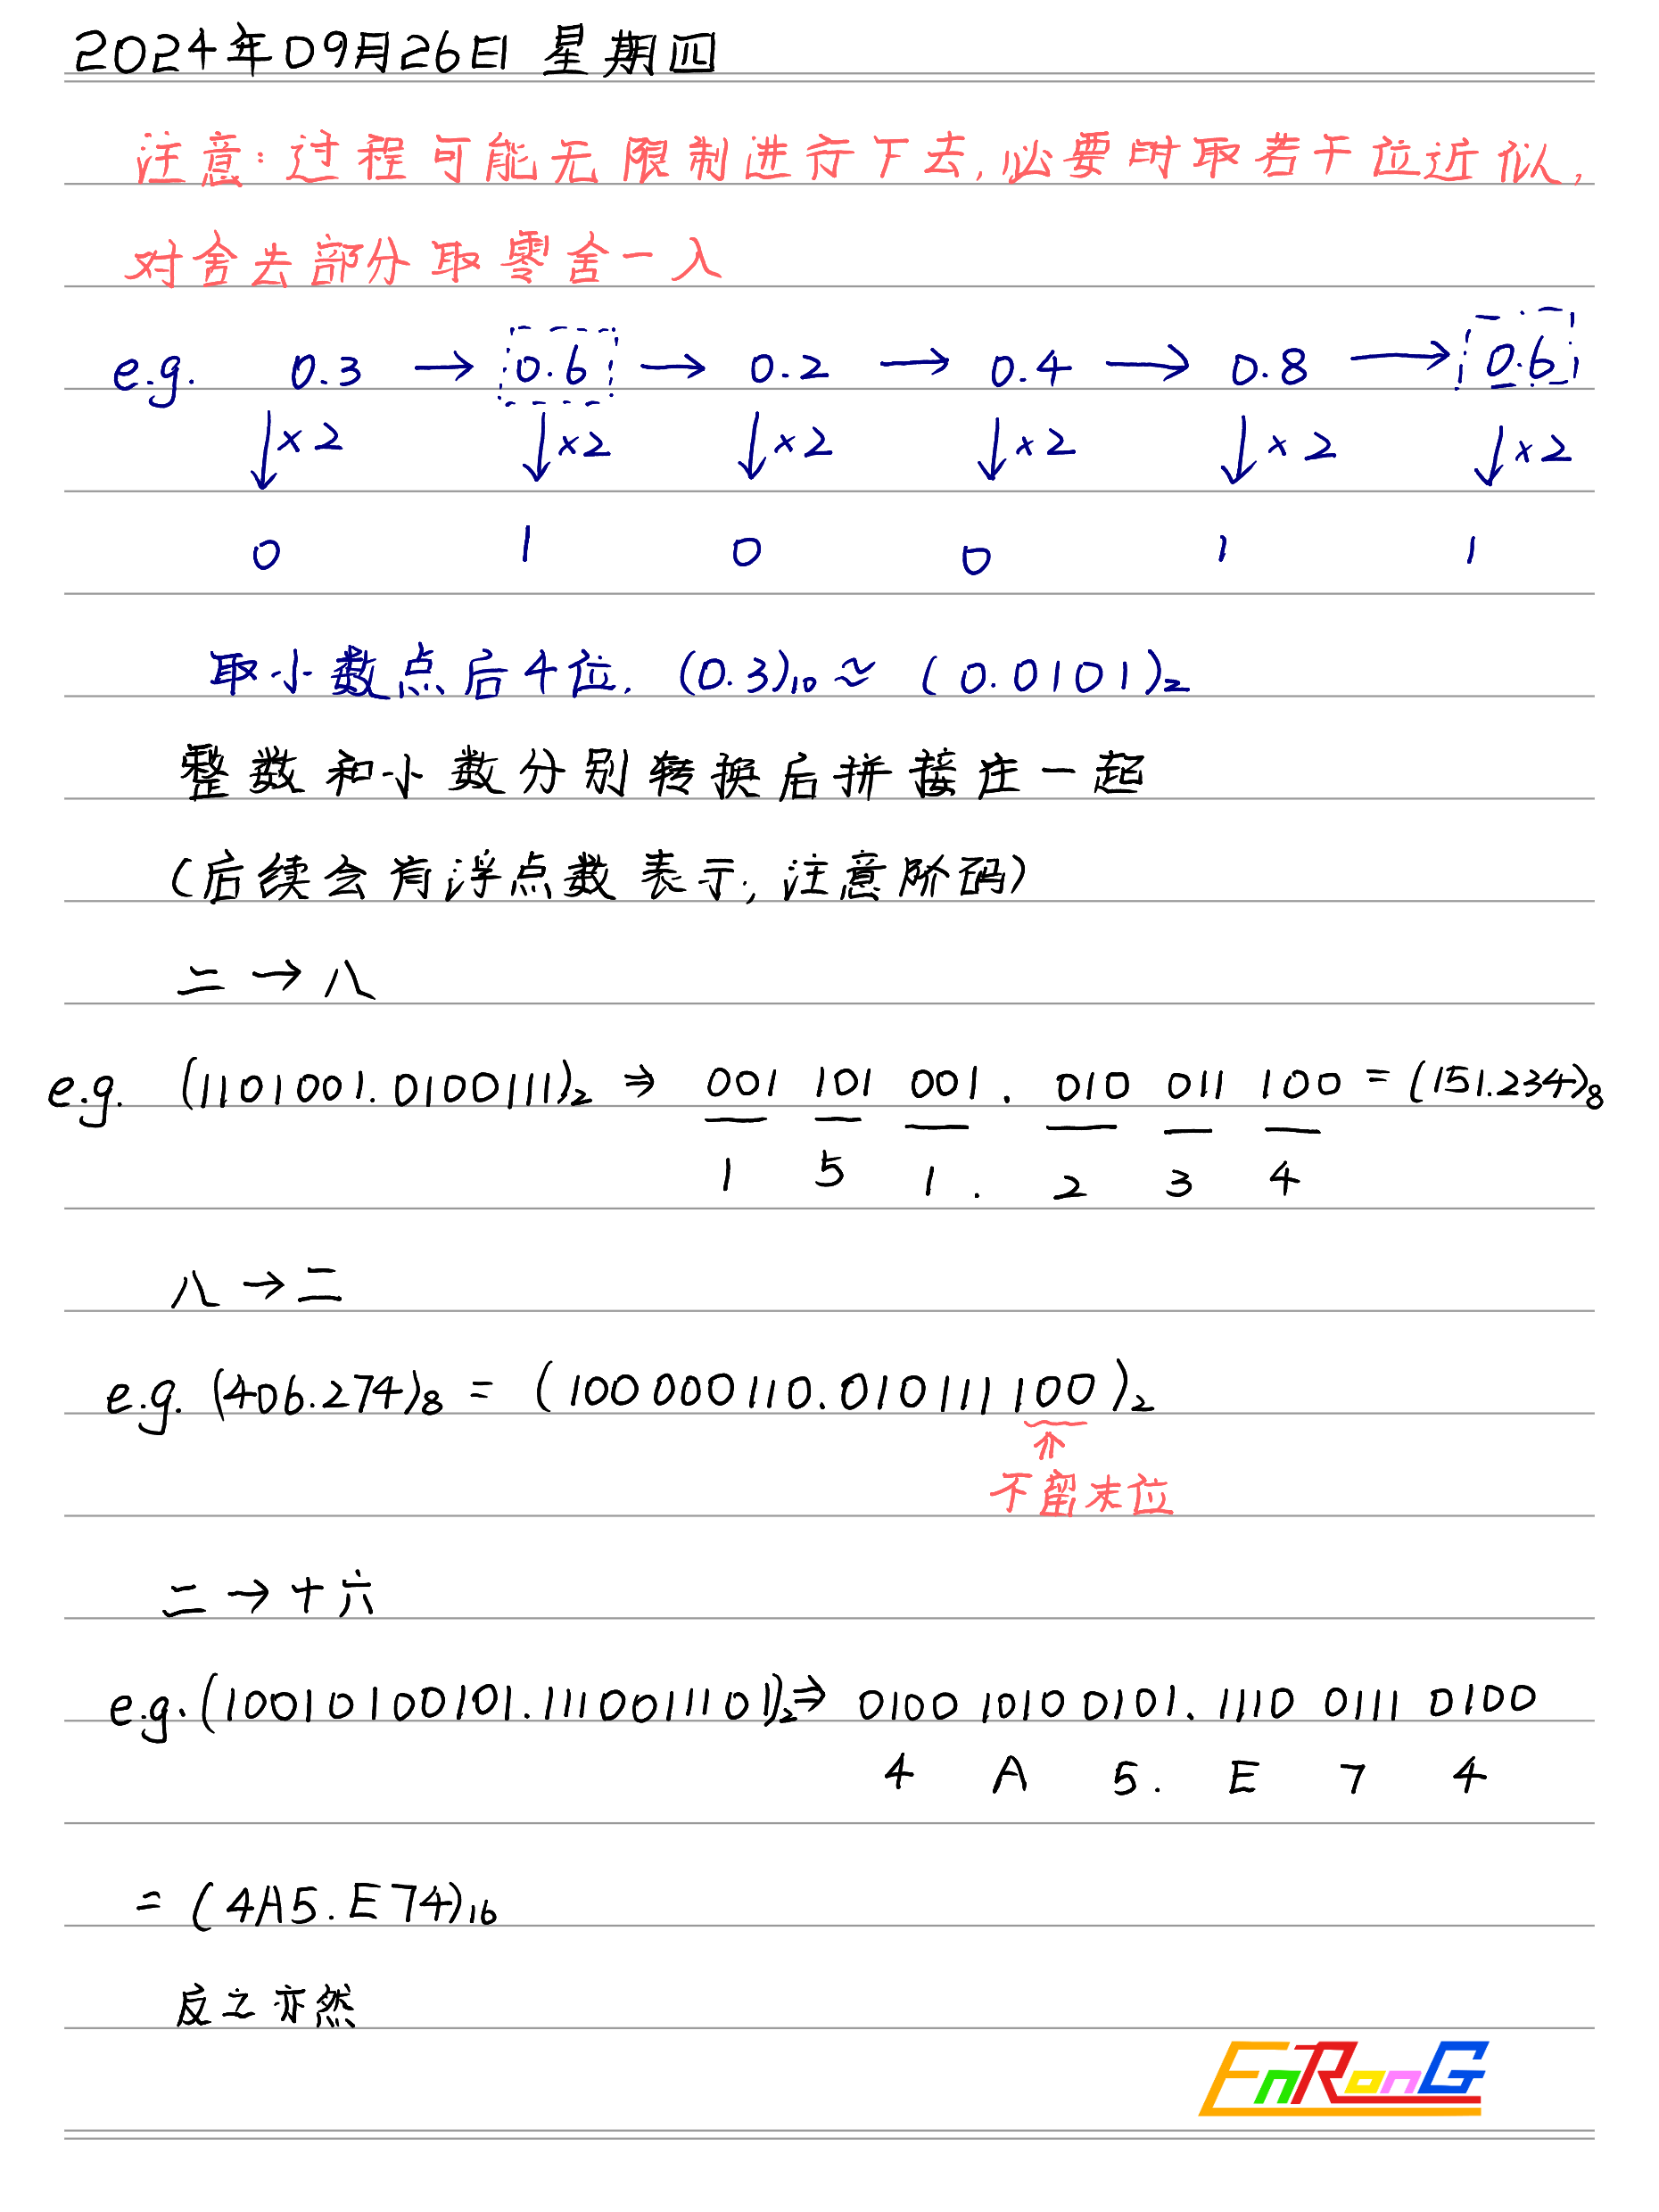 2024年09月26日 星期四
注意:过程可能无限制进行下去,必要时取若干位近似,
对舍去部分取零舍一入
e.g. 0.3 → 0.6 → 0.2 → 0.4 → 0.8 → 0.6
↓×2 ↓×2 ↓×2 ↓×2 ↓×2 ↓×2
0 1 0 0 1 1
取小数点后4位. (0.3)₁₀ ≈ (0.0101)₂
整数和小数分别转换后拼接在一起
(后续会有浮点数表示,注意阶码)
二 → 八
e.g. (1101001.0100111)₂ ⇒ 001 101 001 . 010 011 100 = (151.234)₈
1 5 1 . 2 3 4
八 → 二
e.g. (406.274)₈ = (100 000 110.010 111 100)₂
↑
不留末位
二 → 十六
e.g. (10010100101.1110011101)₂ ⇒ 0100 1010 0101. 1110 0111 0100
4 A 5. E 7 4
= (4A5.E74)₁₆
反之亦然
EnRonG